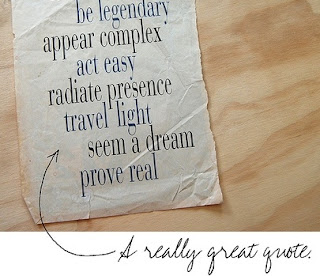 be legendary
appear complex
act easy
radiate presence
travel light
seem a dream
prove real
A really great quote.